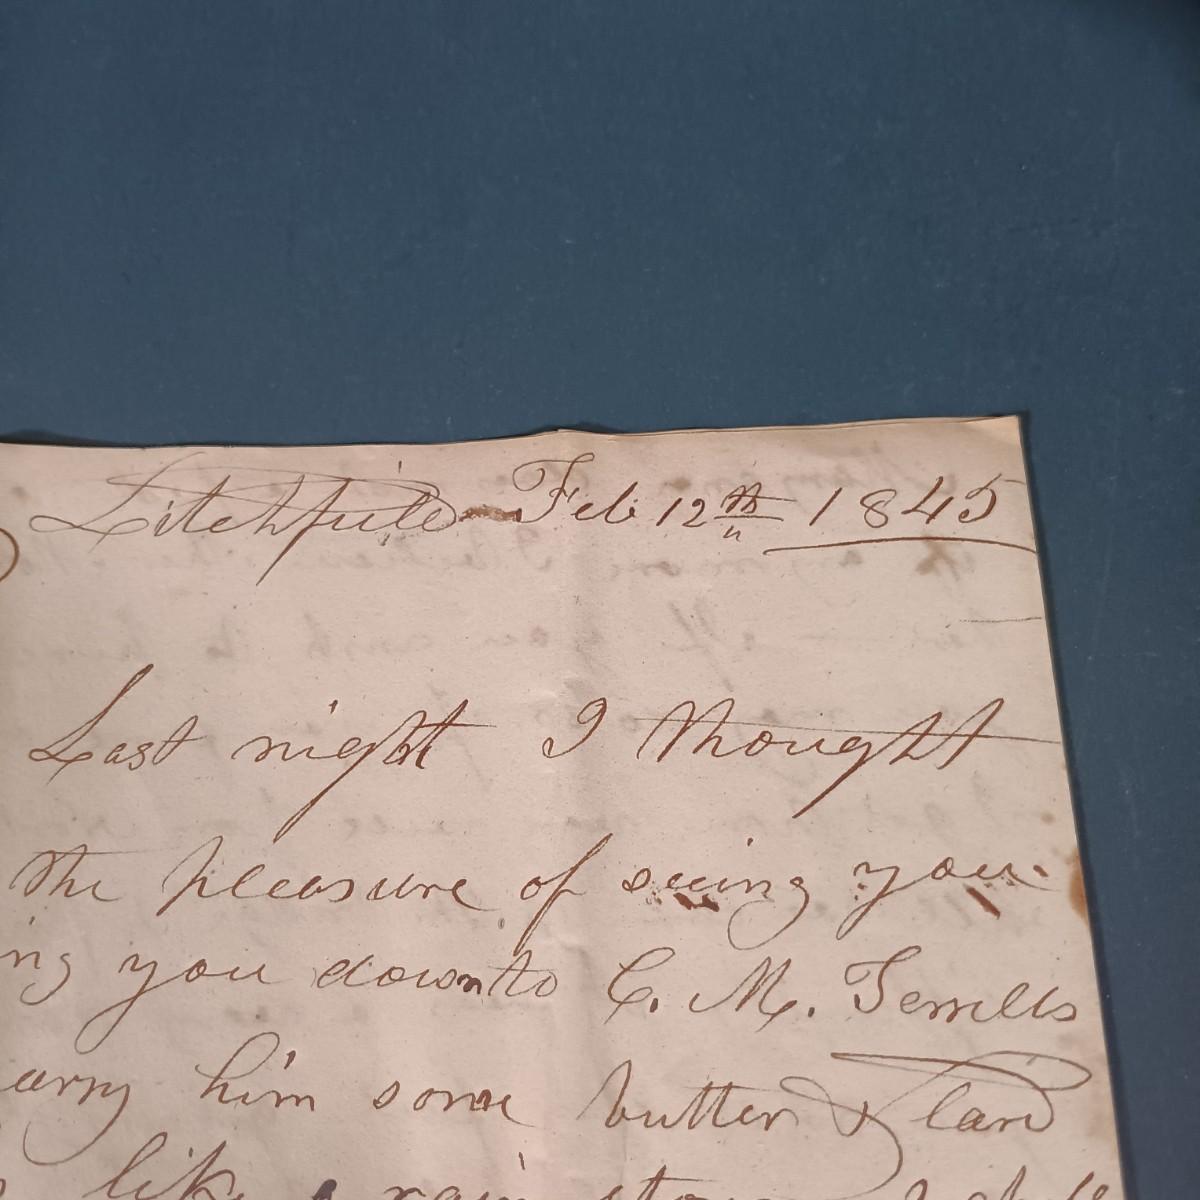 Litchfield Feb 12th 1845
Last night I thought
the pleasure of seeing you
ing you down to C. M. Terrells
arry him some butter & lard
like a rain storm